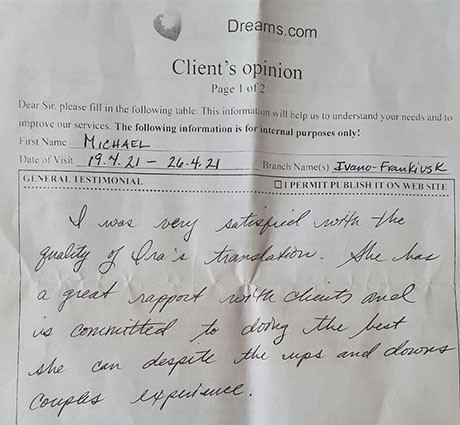 Dreams.com
Client's opinion
Page 1 of 2
Dear Sir, please fill in the following table. This information will help us to understand your needs and to
improve our services. The following information is for internal purposes only!
First Name MICHAEL
Date of Visit 19.4.21 – 26.4.21 Branch Name(s) Ivano-Frankivsk
GENERAL TESTIMONIAL ☐ I PERMIT PUBLISH IT ON WEB SITE
I was very satisfied with the
quality of Ira's translation. She has
a great rapport with clients and
is committed to doing the best
she can despite the ups and downs
couples experience.